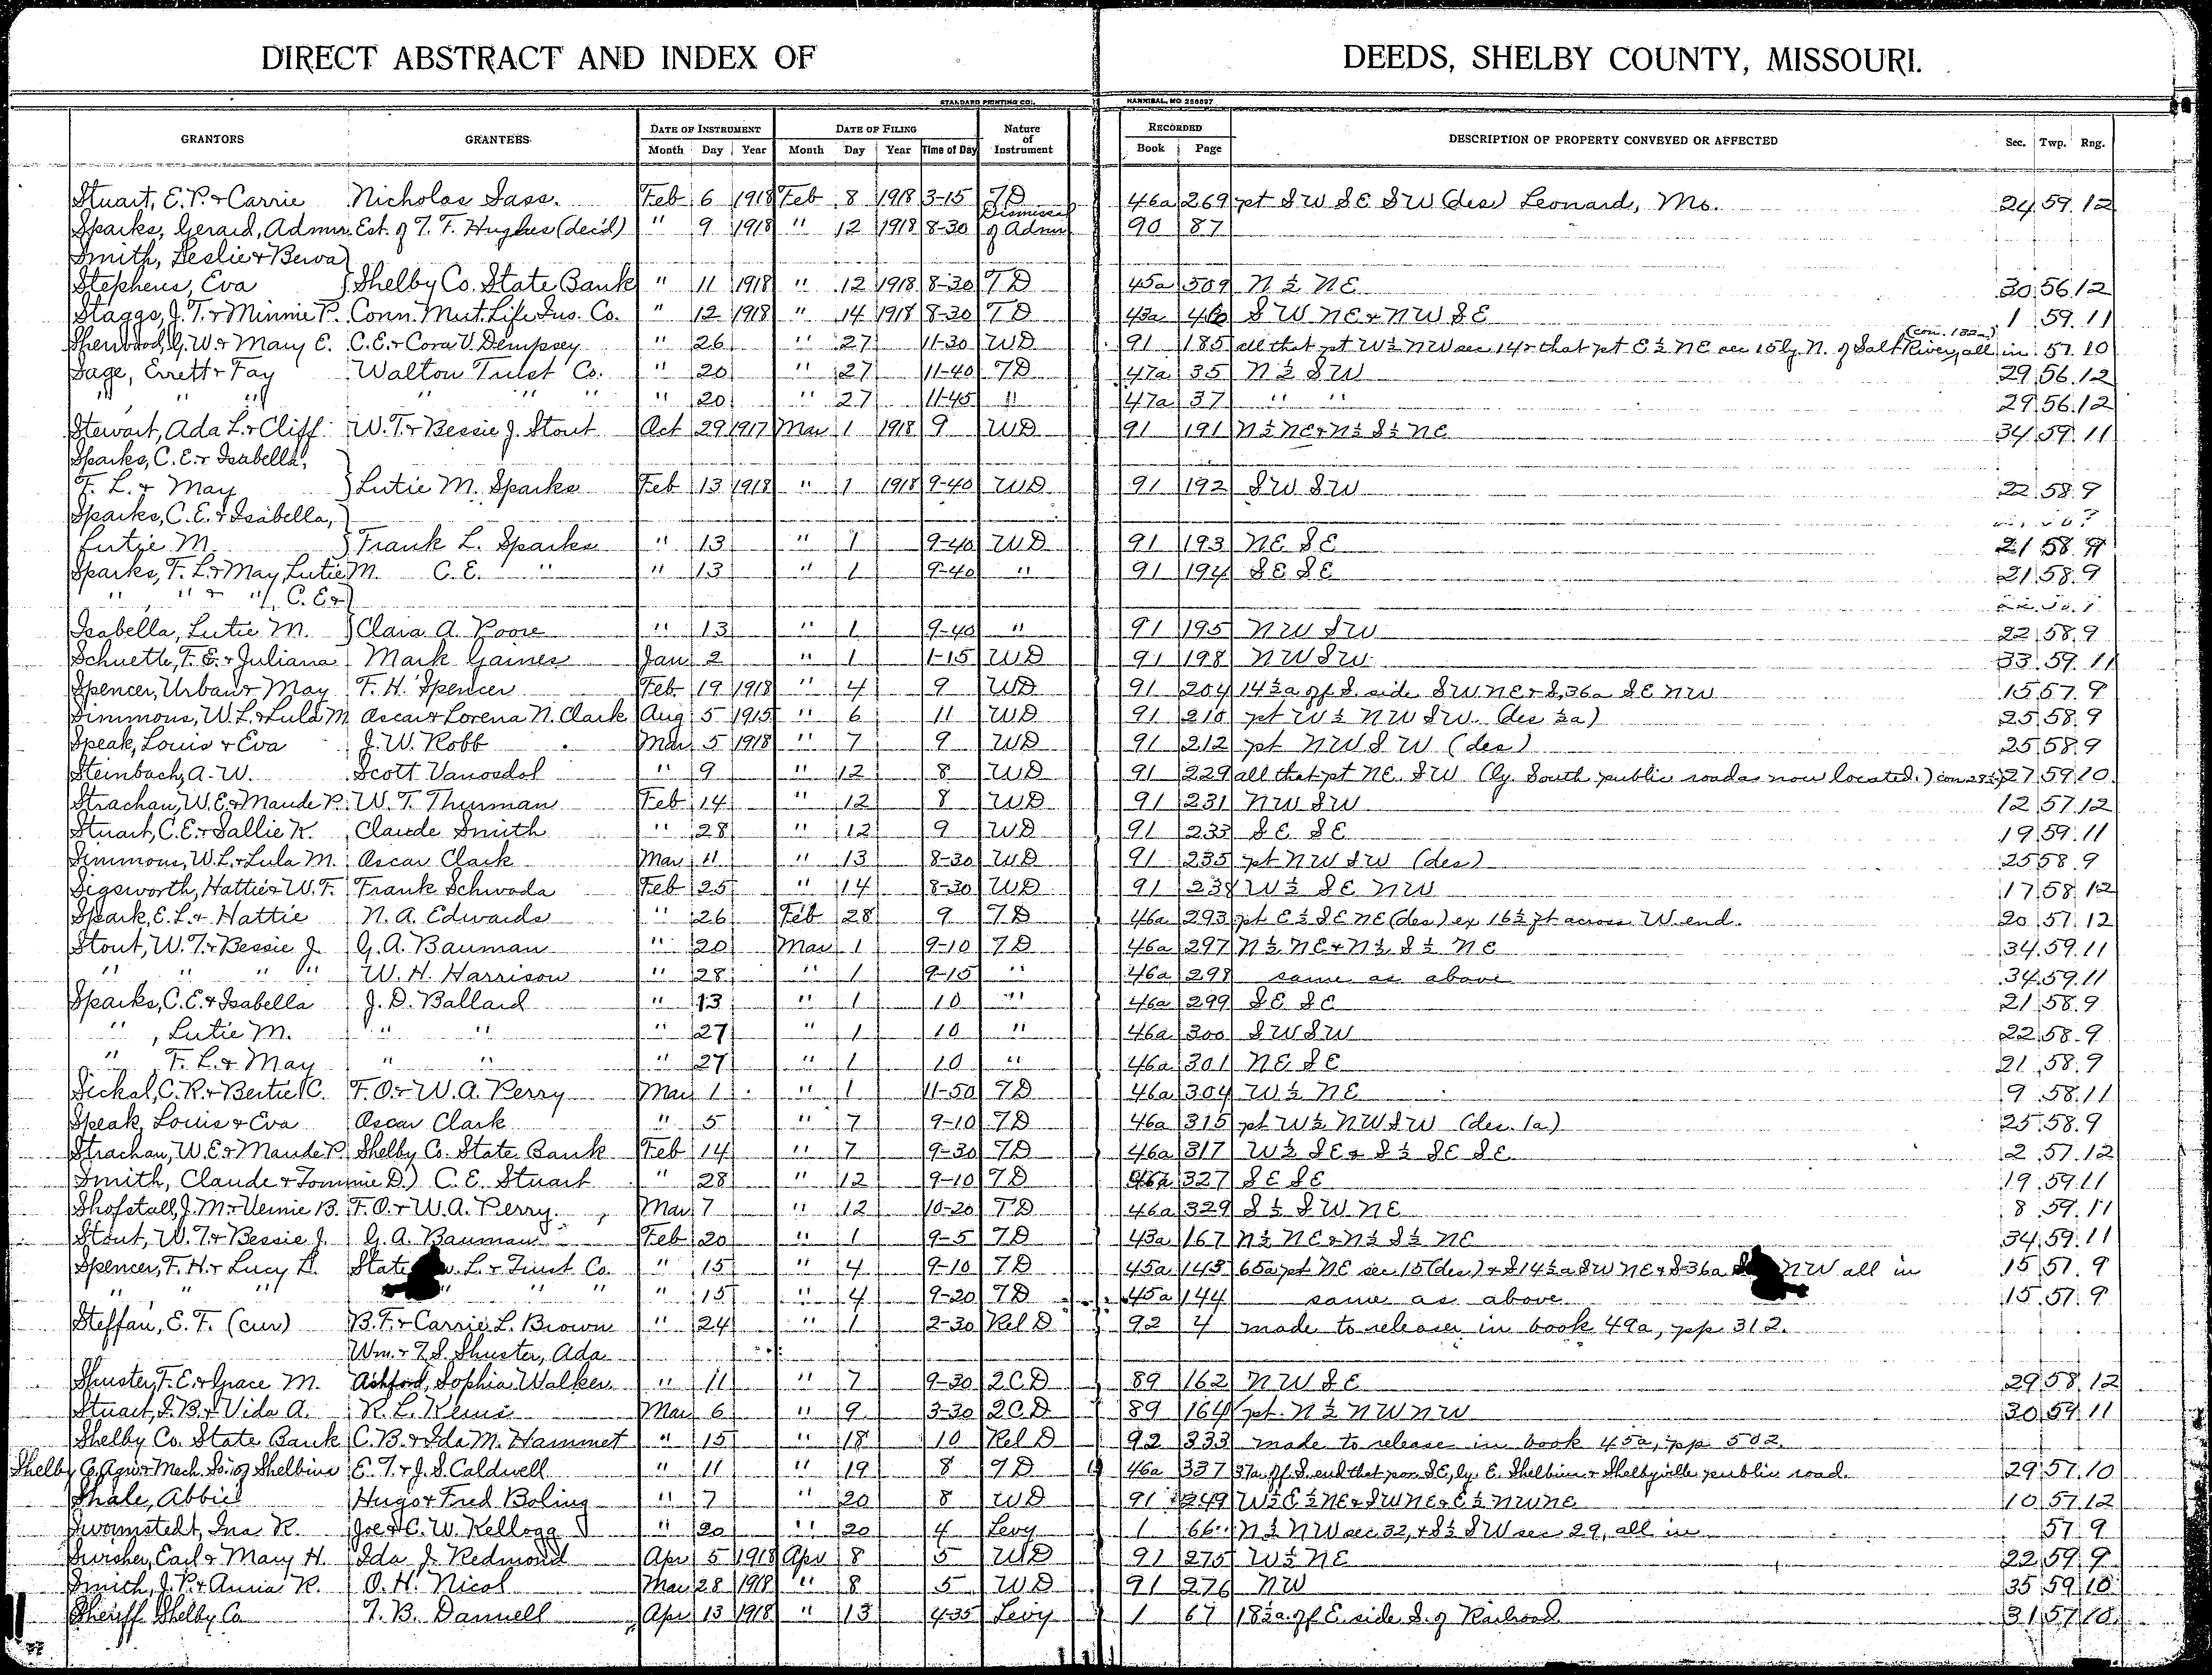 DIRECT ABSTRACT AND INDEX OF DEEDS, SHELBY COUNTY, MISSOURI.
STANDARD PRINTING CO. HANNIBAL, MO 256697
GRANTORS GRANTEES DATE OF INSTRUMENT DATE OF FILING Nature of Instrument RECORDED DESCRIPTION OF PROPERTY CONVEYED OR AFFECTED Sec. Twp. Rng.
Month Day Year Month Day Year Time of Day Book Page
Stuart, E.P. + Carrie Nicholas Sass. Feb 6 1918 Feb 8 1918 3-15 TD 46a 269 pt SW SE SW (des) Leonard, Mo. 24 59 12
Sparks, Gerard, Admr. Est. of T. F. Hughes (dec'd) " 9 1918 " 12 1918 8-30 Dismissal of Admr 90 87
Smith, Leslie + Berva }
Stephens, Eva } Shelby Co. State Bank " 11 1918 " 12 1918 8-30 TD 45a 509 N½ NE 30 56 12
Staggs, J. T. + Minnie P. Conn. Mut. Life Ins. Co. " 12 1918 " 14 1918 8-30 TD 43a SW NE + NW SE 1 59 11
Sherwood, G. W. + Mary E. C.E. + Cora V. Dempsey " 26 " 27 11-30 WD 91 185 all that pt W½ NW sec 14 + that pt E½ NE sec 15 ly. N. of Salt River, all in 57 10
Sage, Errett + Fay Walton Trust Co. " 20 " 27 11-40 TD 47a 35 N½ SW 29 56 12
" " " " " " " 20 " 27 11-45 " 47a 37 " " 29 56 12
Stewart, Ada L. + Cliff W. T. + Bessie J. Stout Oct 29 1917 Mar 1 1918 9 WD 91 191 N½ NE + N½ S½ NE 34 59 11
Sparks, C. E. + Isabella, }
F. L. + May } Lutie M. Sparks Feb 13 1918 " 1 1918 9-40 WD 91 192 SW SW 22 58 9
Sparks, C. E. + Isabella, }
Lutie M } Frank L. Sparks " 13 " 1 9-40 WD 91 193 NE SE 21 58 9
Sparks, F. L. + May, Lutie M. C. E. " " 13 " 1 9-40 " 91 194 SE SE 21 58 9
" , " + " , C. E + }
Isabella, Lutie M. } Clara A. Poore " 13 " 1 9-40 " 91 195 NW SW 22 58 9
Schuette, F. E. + Juliana Mark Gaines Jan 2 " 1 1-15 WD 91 198 NW SW 33 59 11
Spencer, Urban + May F. H. Spencer Feb 19 1918 " 4 9 WD 91 204 14½a off S. side SW NE + S. 36a SE NW 15 57 9
Simmons, W. L. + Lula M Oscar + Lorena N. Clark Aug 5 1915 " 6 11 WD 91 210 pt W½ NW SW. (des ½a) 25 58 9
Speak, Louis + Eva J. W. Robb Mar 5 1918 " 7 9 WD 91 212 pt NW SW (des) 25 58 9
Steinbach, A. W. Scott Vanosdol " 9 " 12 8 WD 91 229 all that pt NE SW (ly. South public road as now located.) 27 59 10
Strachan, W. E. + Maude P. W. T. Thurman Feb 14 " 12 8 WD 91 231 NW SW 12 57 12
Stuart, C. E. + Sallie K. Claude Smith " 28 " 12 9 WD 91 233 SE SE 19 59 11
Simmons, W. L. + Lula M. Oscar Clark Mar 11 " 13 8-30 WD 91 235 pt NW SW (des) 25 58 9
Sigsworth, Hattie + W. F. Frank Schwada Feb 25 " 14 8-30 WD 91 238 W½ SE NW 17 58 12
Spark, E. L. + Hattie N. A. Edwards " 26 Feb 28 9 TD 46a 293 pt E½ SE NE (des) ex 16½ ft across W. end. 20 57 12
Stout, W. T. + Bessie J G. A. Bauman " 20 Mar 1 9-10 TD 46a 297 N½ NE + N½ S½ NE 34 59 11
" " " " W. H. Harrison " 28 " 1 9-15 " 46a 298 same as above 34 59 11
Sparks, C. E. + Isabella J. D. Ballard " 13 " 1 10 " 46a 299 SE SE 21 58 9
" , Lutie M. " " " 27 " 1 10 " 46a 300 SW SW 22 58 9
" F. L. + May " " " 27 " 1 10 " 46a 301 NE SE 21 58 9
Sickal, C. R. + Bertie C. F. O. + W. A. Perry Mar 1 " 1 11-50 TD 46a 304 W½ NE 9 58 11
Speak, Louis + Eva Oscar Clark " 5 " 7 9-10 TD 46a 315 pt W½ NW SW (des. 1a) 25 58 9
Strachan, W. E. + Maude P. Shelby Co. State Bank Feb 14 " 7 9-30 TD 46a 317 W½ SE + S½ SE SE 2 57 12
Smith, Claude + Tommie D.) C. E. Stuart " 28 " 12 9-10 TD 46a 327 SE SE 19 59 11
Shofstall, J. M. + Vernie B. F. O. + W. A. Perry Mar 7 " 12 10-20 TD 46a 329 S½ SW NE 8 59 11
Stout, W. T. + Bessie J. G. A. Bauman Feb 20 " 1 9-5 TD 43a 167 N½ NE + N½ S½ NE 34 59 11
Spencer, F. H. + Lucy L. State L. + Trust Co. " 15 " 4 9-10 TD 45a 143 65a pt NE sec 15 (des) + S 14½a SW NE + S 36a NW all in 15 57 9
" " " " " " 15 " 4 9-20 TD 45a 144 same as above 15 57 9
Steffan, E. F. (cur) B. F. + Carrie L. Brown " 24 " 1 2-30 Rel D 92 4 made to release in book 49a, pp 312.
Wm. + T. S. Shuster, Ada
Shuster, F. E. + Grace M. Ashford, Sophia Walker " 11 " 7 9-30 2CD 89 162 NW SE 29 58 12
Stuart, J. B. + Vida A. R. L. Mar 6 " 9 3-30 2CD 89 164 pt. N½ NW NW 30 59 11
Shelby Co. State Bank C. B. + Ida M. Hammet " 15 " 18 10 Rel D 92 333 made to release in book 45a, pp 502.
Shelby Co. Agr. + Mech. So. of Shelbina E. T. + J. S. Caldwell " 11 " 19 8 TD 46a 337 37a. off S. end that por. SE, ly. E. Shelbina + Shelbyville public road. 29 57 10
Shale, Abbie Hugo + Fred Boling " 7 " 20 8 WD 91 249 W½ E½ NE + SW NE + E½ NW NE 10 57 12
Swormstedt, Ina R. Joe + C. W. Kellogg " 20 " 20 4 Levy 1 66 N½ NW sec 32, + S½ SW sec 29, all in 57 9
Swisher, Earl + Mary H. Ida J. Redmond Apr 5 1918 Apr 8 5 WD 91 275 W½ NE 22 59 9
Smith, J. P. + Annia R. O. H. Nicol Mar 28 1918 " 8 5 WD 91 276 NW 35 59 10
Sheriff Shelby Co T. B. Dannell Apr 13 1918 " 13 4-35 Levy 1 67 18½a. off E. side S. of Railroad 31 57 10